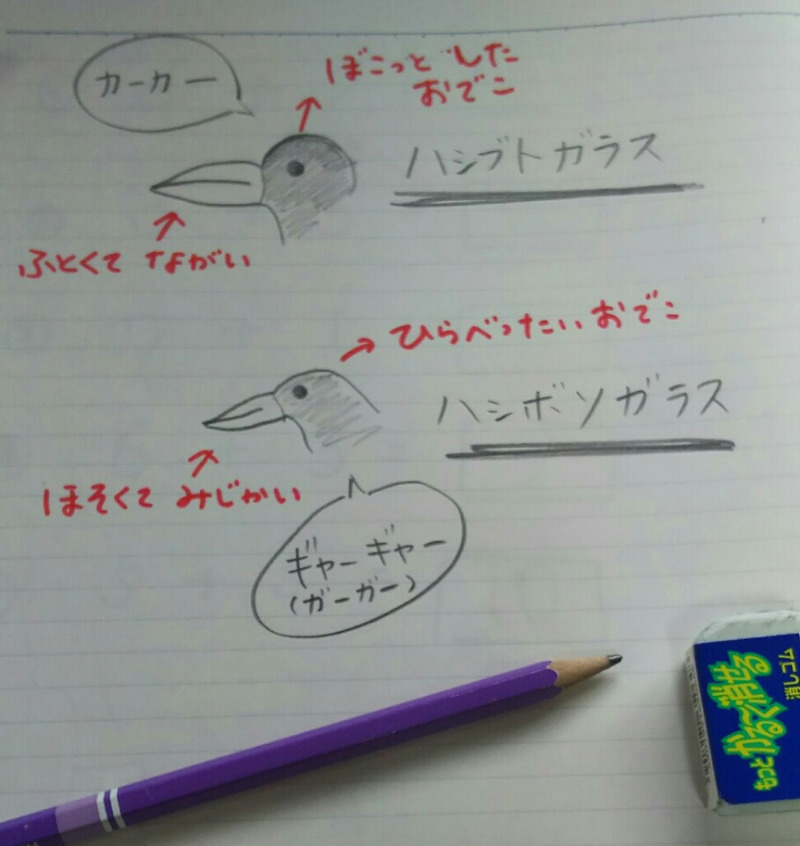 カーカー
ぼこっとした
おでこ
ハシブトガラス
ふとくて ながい
ひらべったいおでこ
ハシボソガラス
ほそくて みじかい
ギャーギャー
(ガーガー)
もっと
かるく消せる
消しゴム